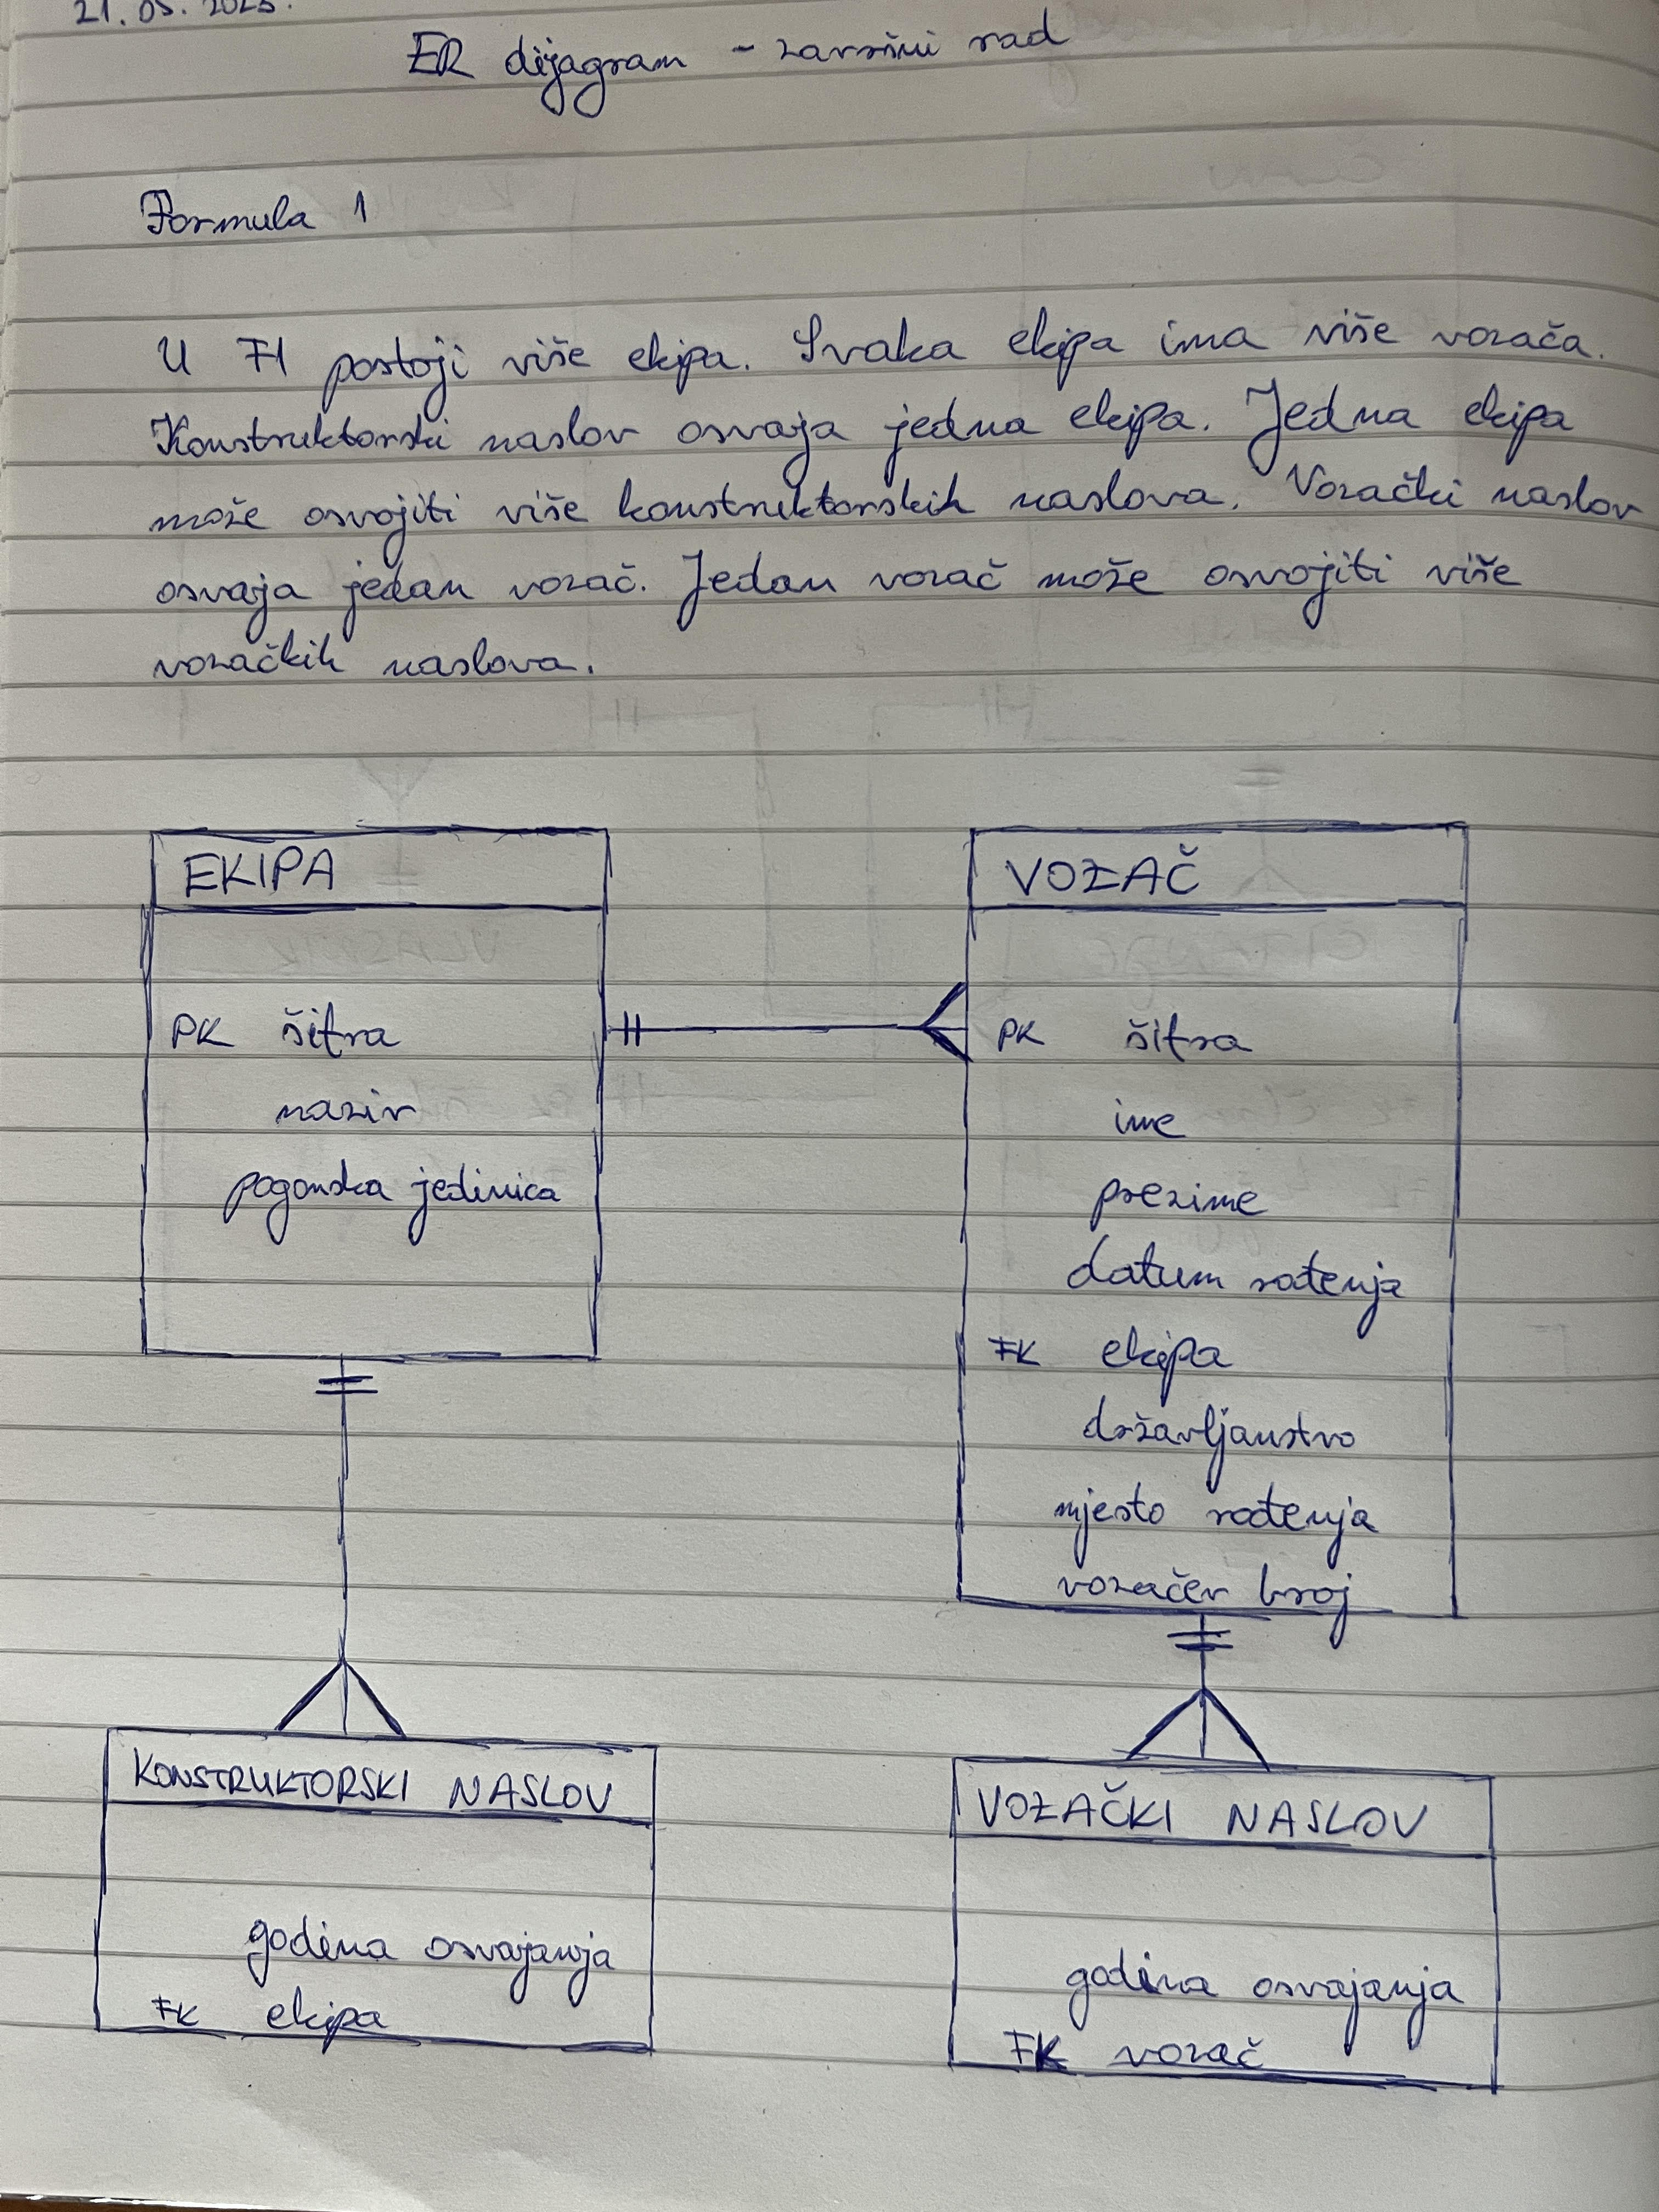 21. 05. 2025.
ER dijagram - završni rad
Formula 1
U F1 postoji više ekipa. Svaka ekipa ima više vozača.
Konstruktorski naslov osvaja jedna ekipa. Jedna ekipa
može osvojiti više konstruktorskih naslova. Vozački naslov
osvaja jedan vozač. Jedan vozač može osvojiti više
vozačkih naslova.
EKIPA
PK šifra
naziv
pogonska jedinica
VOZAČ
PK šifra
ime
prezime
datum rođenja
FK ekipa
državljanstvo
mjesto rođenja
vozačev broj
KONSTRUKTORSKI NASLOV
godina osvajanja
FK ekipa
VOZAČKI NASLOV
godina osvajanja
FK vozač